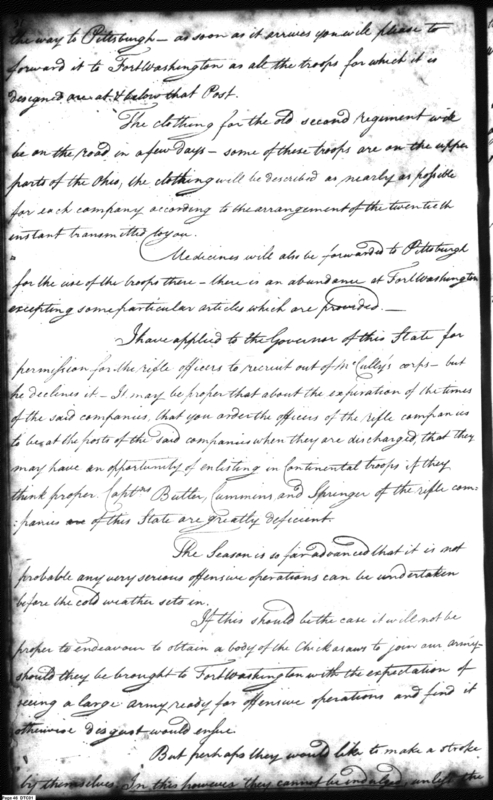 the way to Pittsburgh – as soon as it arrives you will please to
forward it to Fort Washington as all the troops for which it is
designed are at & below that Post.
The clothing for the old second regiment will
be on the road in a few days – some of these troops are on the upper
parts of the Ohio, the clothing will be described as nearly as possible
for each company according to the arrangement of the twentieth
instant transmitted to you.
Medicines will also be forwarded to Pittsburgh
for the use of the troops there – there is an abundance at Fort Washington
excepting some particular articles which are provided. –
I have applied to the Governor of this State for
permission for the rifle officers to recruit out of McCully's corps – but
he declines it – It may be proper that about the expiration of the times
of the said companies, that you order the officers of the rifle companies
to be at the posts of the said companies when they are discharged, that they
may have an opportunity of enlisting in Continental troops if they
think proper. Captns Butler, Cummins and Sprenger of the rifle com=
:panies are of this State are greatly deficient.
The Season is so far advanced that it is not
probable any very serious offensive operations can be undertaken
before the cold weather sets in.
If this should be the case it will not be
proper to endeavour to obtain a body of the Chickasaws to join our army –
should they be brought to Fort Washington with the expectation of
seeing a large army ready for offensive operations and find it
otherwise disgust would ensue.
But perhaps they would like to make a stroke
by themselves. In this however they cannot be indulged, unless the
Page 46 DTC01